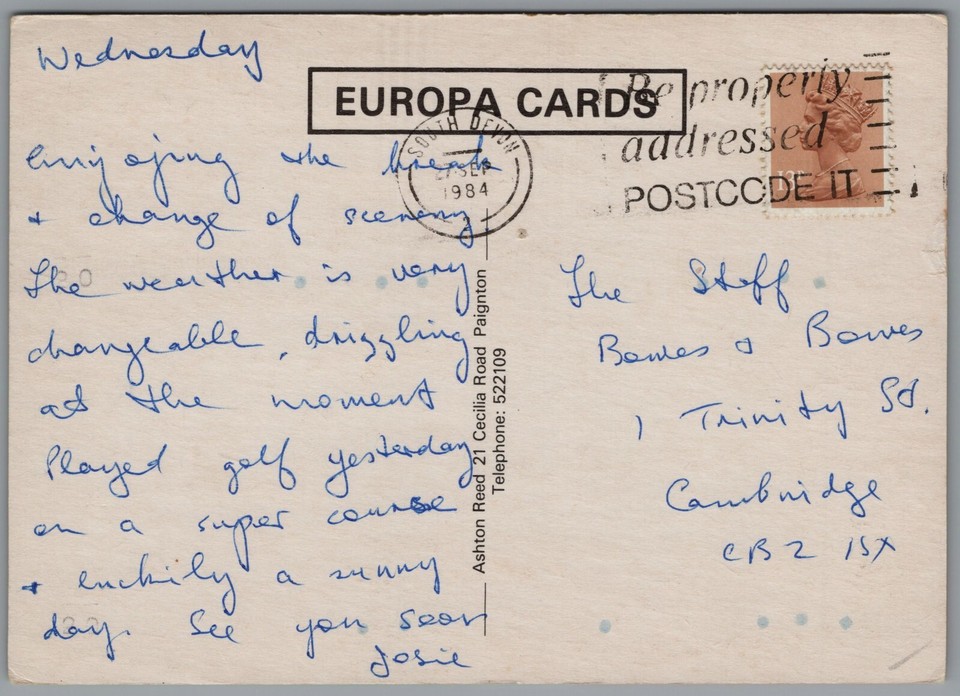 Wednesday
EUROPA CARDS
Enjoying the break
+ change of scenery
The weather is very
changeable, drizzling
at the moment
Played golf yesterday
on a super course
+ luckily a sunny
day. See you soon
Josie
SOUTH DEVON
27 SEP
1984
Be properly
addressed
POSTCODE IT
The Staff
Bowes & Bowes
1 Trinity St.
Cambridge
CB2 1SX
Ashton Reed 21 Cecilia Road Paignton
Telephone: 522109